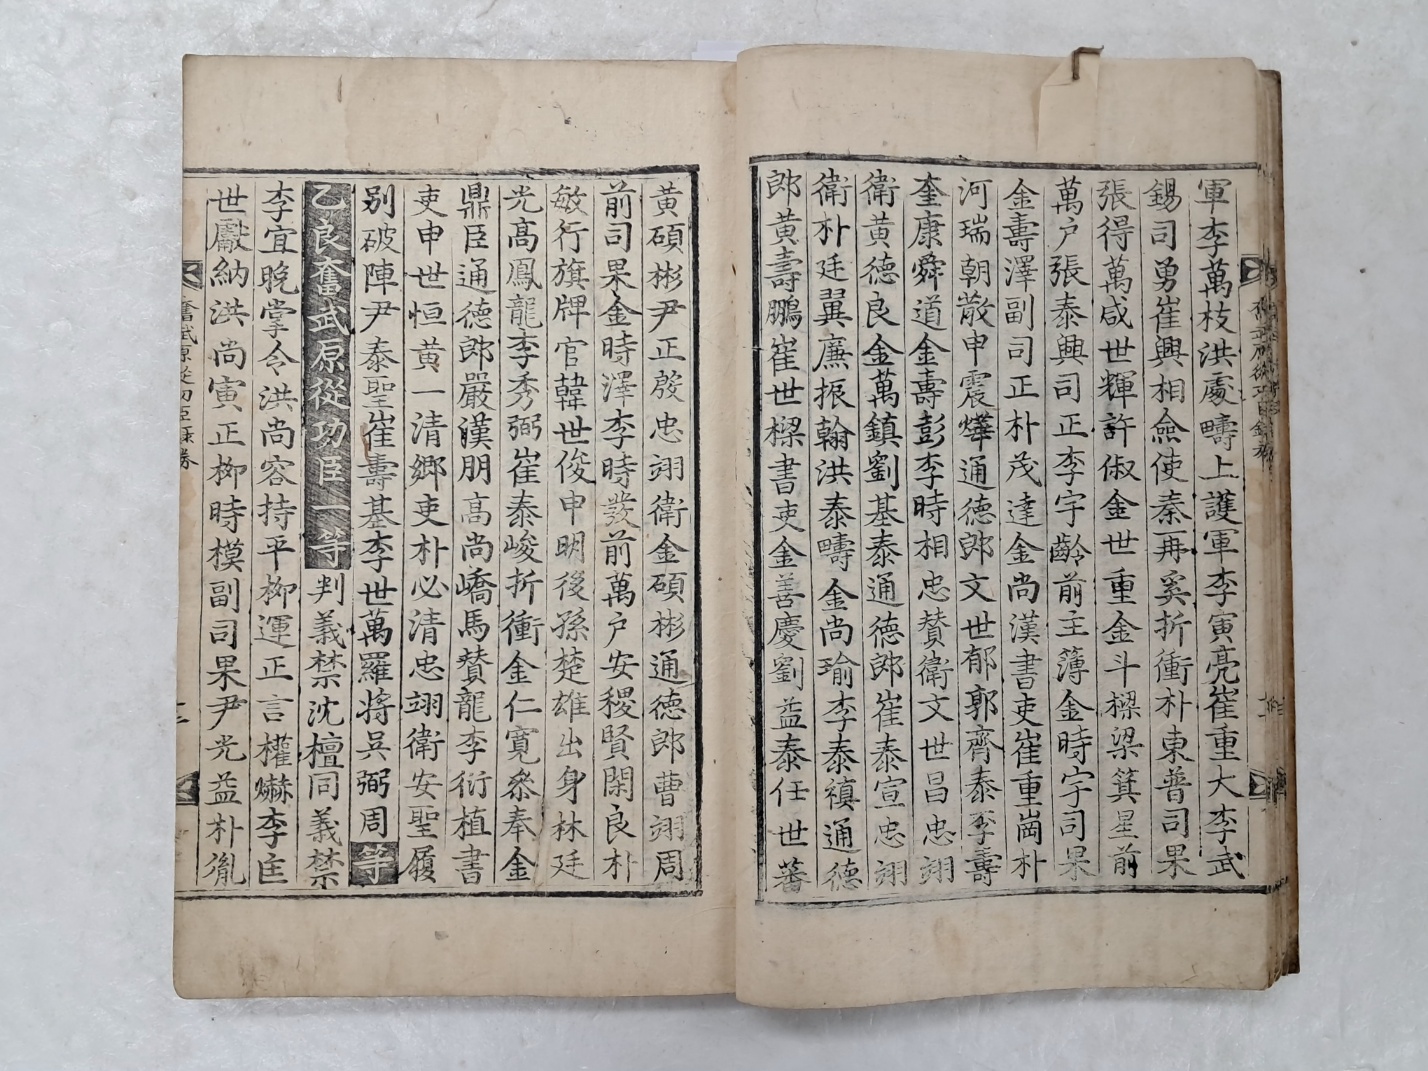 軍李萬枝洪處疇上護軍李寅亮崔重大李武
錫司勇崔興相僉使秦再奚折衝朴東普司果
張得萬咸世輝許俶金世重金斗樑梁箕星前
萬戶張泰興司正李宇齡前主簿金時宇司果
金壽澤副司正朴茂達金尚漢書吏崔重崗朴
河瑞朝散申震燁通德郎文世郁郭齊泰李壽
奎康舜道金壽彭李時相忠贊衛文世昌忠翊
衛黃德良金萬鎮劉基泰通德郎崔泰宣忠翊
衛朴廷翼廉振翰洪泰疇金尚瑜李泰禛通德
郎黃壽鵬崔世樑書吏金善慶劉益泰任世蕃
黃碩彬尹正殷忠翊衛金碩彬通德郎曹翊周
前司果金時澤李時發前萬戶安稷賢閑良朴
敏行旗牌官韓世俊申明後孫楚雄出身林廷
光高鳳龍李秀弼崔泰峻折衝金仁寬叅奉金
鼎臣通德郎嚴漢朋高尚嶠馬贊龍李衍植書
吏申世恒黃一清鄉吏朴必清忠翊衛安聖履
別破陣尹泰聖崔壽基李世萬羅將吳弼周等
乙良奮武原從功臣一等判義禁沈檀同義禁
李宜晚掌令洪尚容持平柳運正言權爀李匡
世獻納洪尚寅正柳時模副司果尹光益朴胤
奮武原從功臣錄券